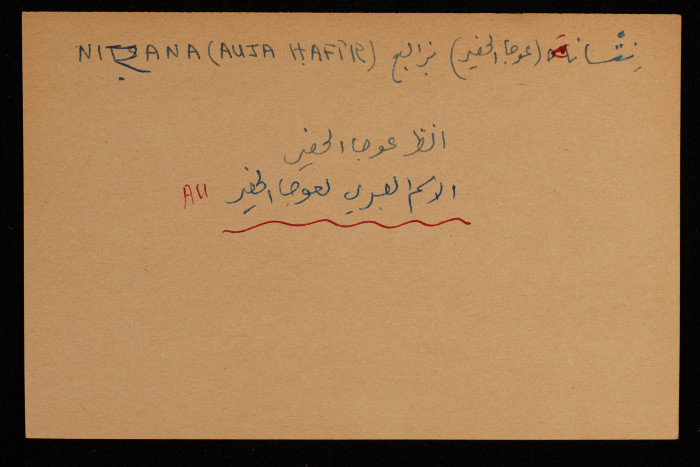 NITSANA (AUJA HAFIR) نِتْسانَه (عوجا الحفير) بئر السبع
انظر عوجا الحفير
الاسم العبري لعوجا الحفير AU